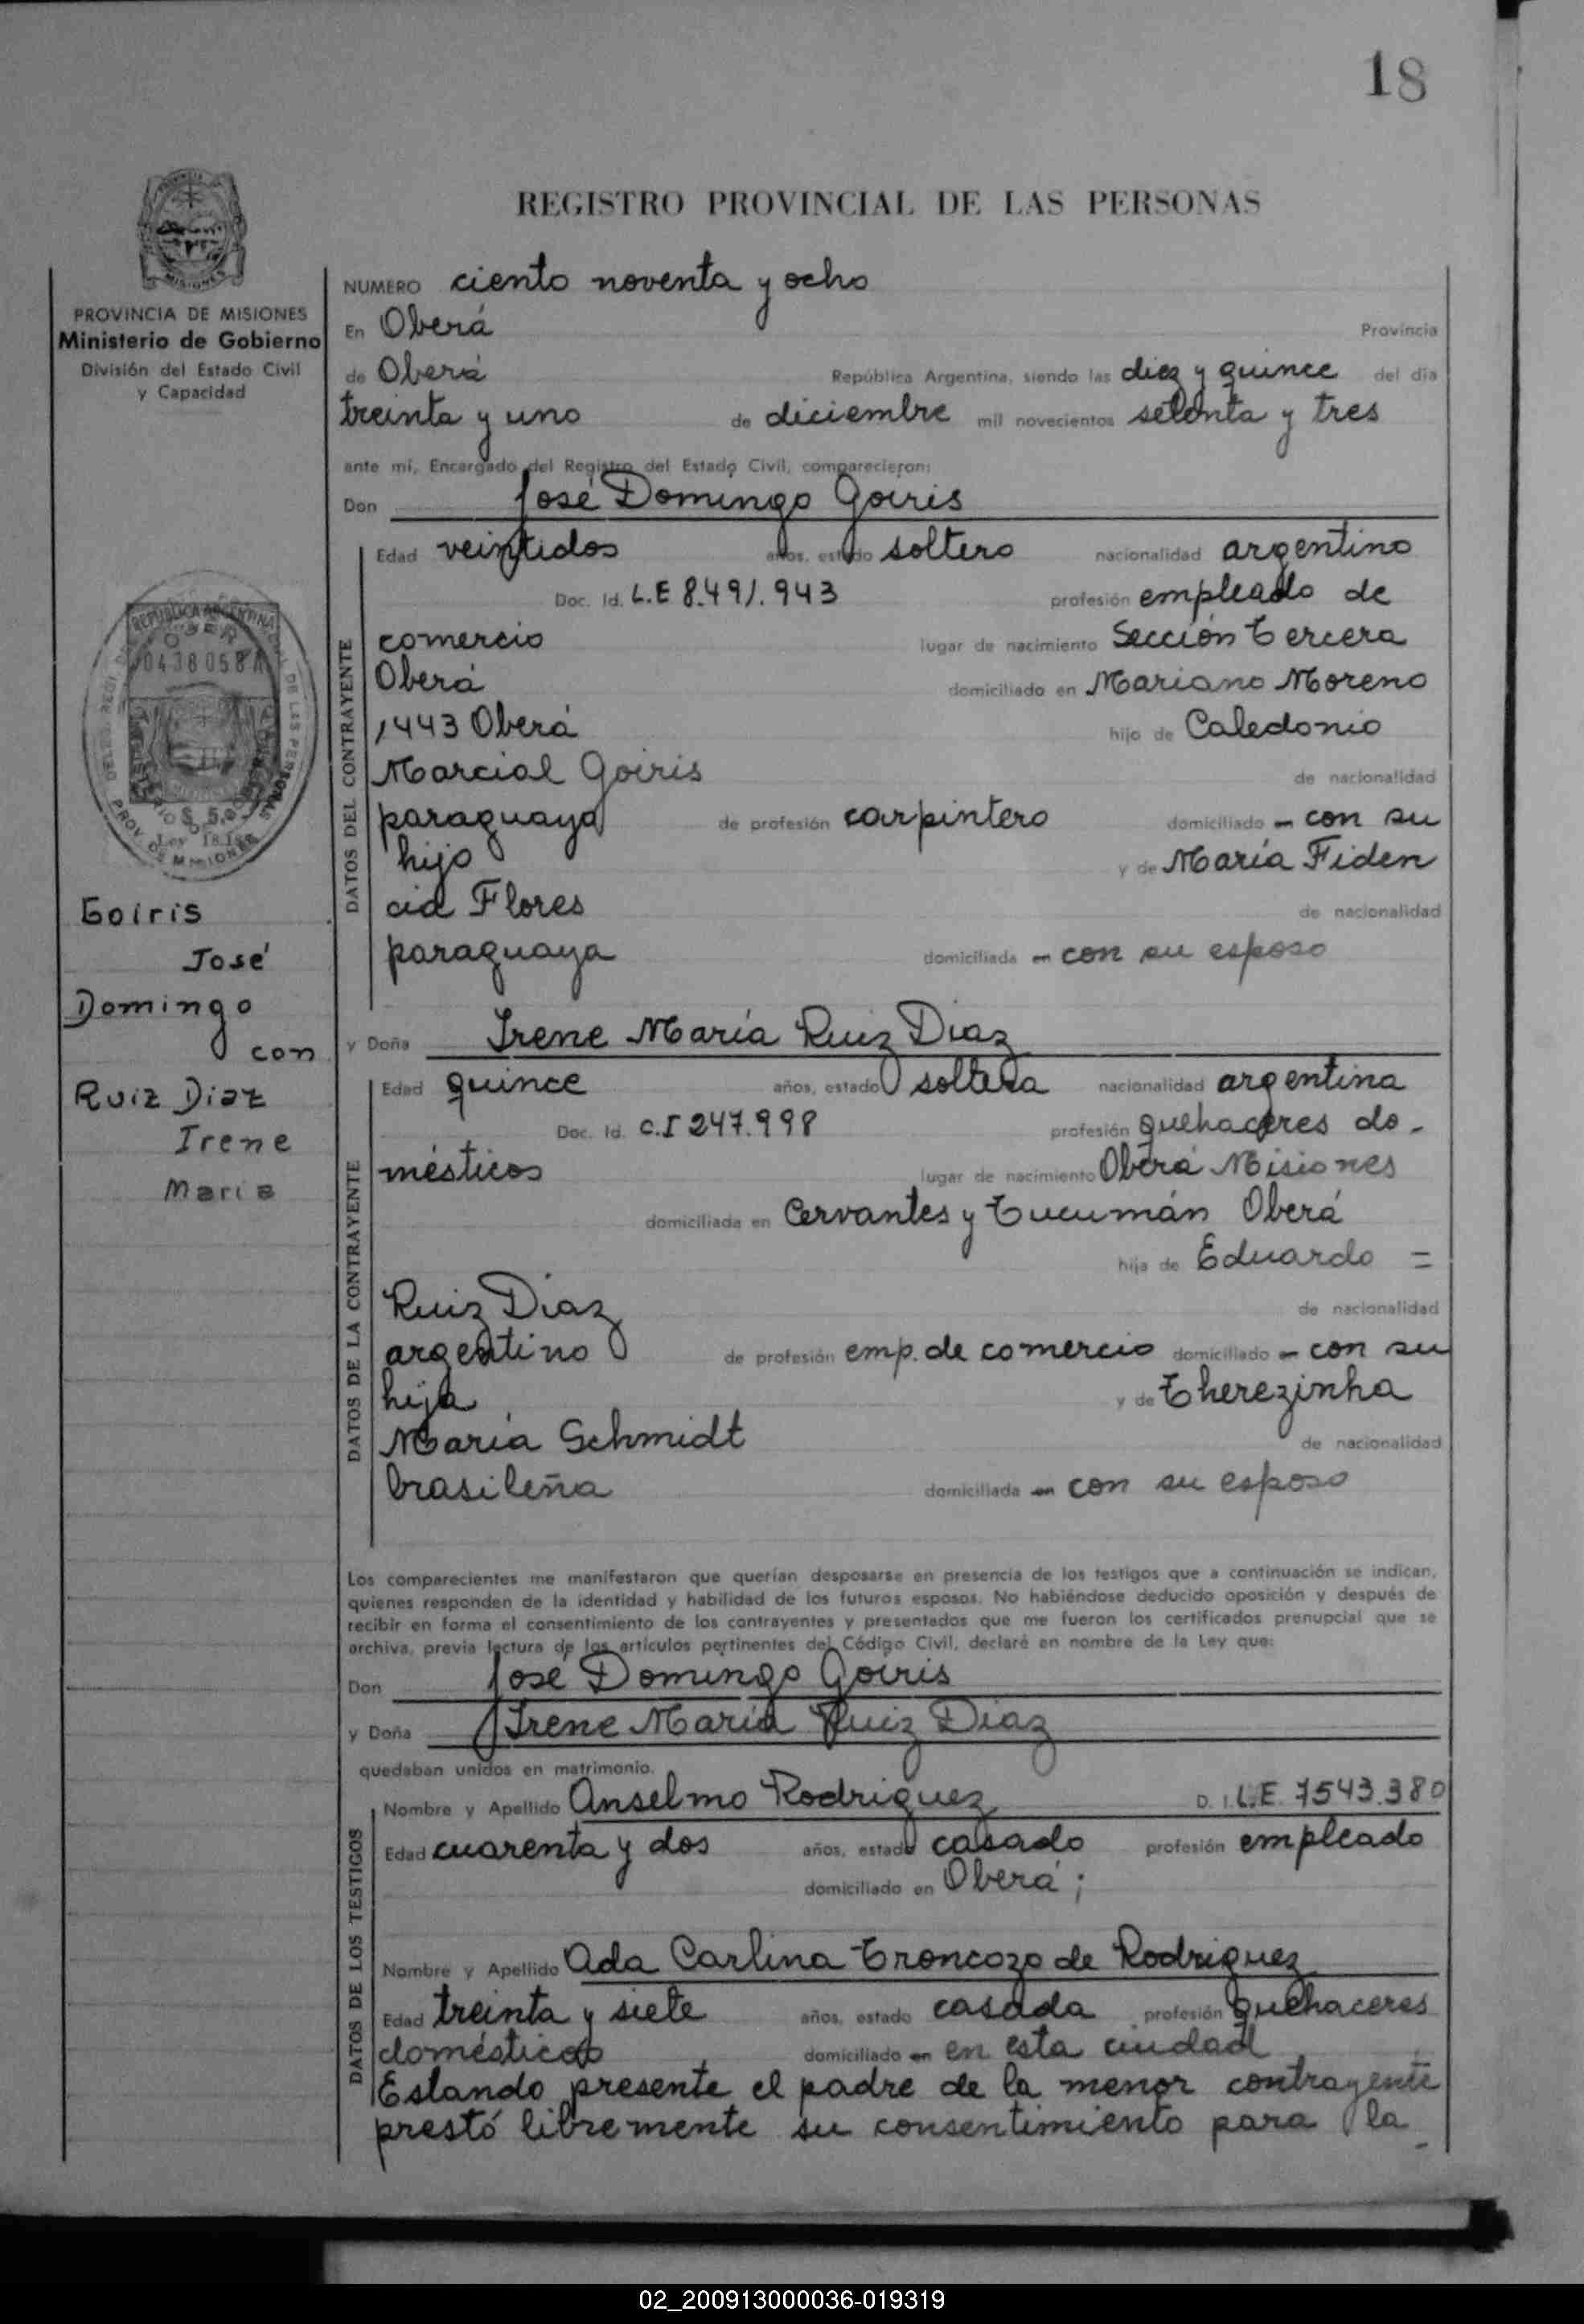 18
REGISTRO PROVINCIAL DE LAS PERSONAS
MISIONES
PROVINCIA DE MISIONES
Ministerio de Gobierno
División del Estado Civil
y Capacidad
NUMERO ciento noventa y ocho
En Oberá Provincia
de Oberá República Argentina, siendo las diez y quince del día
treinta y uno de diciembre mil novecientos setenta y tres
ante mi, Encargado del Registro del Estado Civil, comparecieron:
Don José Domingo Goiris
DATOS DEL CONTRAYENTE
Edad veintidos años, estado soltero nacionalidad argentino
Doc. Id. L.E 8.491.943 profesión empleado de
comercio lugar de nacimiento Sección Tercera
Oberá domiciliado en Mariano Moreno
1443 Oberá hijo de Caledonio
Marcial Goiris de nacionalidad
paraguaya de profesión carpintero domiciliado en con su
hijo y de María Fiden
cia Flores de nacionalidad
paraguaya domiciliada en con su esposo
REPUBLICA ARGENTINA
0438058A
PROV. DE MISIONES
Goiris
José
Domingo
con
Ruiz Diaz
Irene
Maria
y Doña Irene María Ruiz Diaz
DATOS DE LA CONTRAYENTE
Edad quince años, estado soltera nacionalidad argentina
Doc. Id. C.I 247.998 profesión quehaceres do-
mésticos lugar de nacimiento Oberá Misiones
domiciliada en Cervantes y Tucumán Oberá
hija de Eduardo =
Ruiz Diaz de nacionalidad
argentino de profesión emp. de comercio domiciliado en con su
hija y de Therezinha
María Schmidt de nacionalidad
brasileña domiciliada en con su esposo
Los comparecientes me manifestaron que querían desposarse en presencia de los testigos que a continuación se indican,
quienes responden de la identidad y habilidad de los futuros esposos. No habiéndose deducido oposición y después de
recibir en forma el consentimiento de los contrayentes y presentados que me fueron los certificados prenupcial que se
archiva, previa lectura de los artículos pertinentes del Código Civil, declaré en nombre de la Ley que:
Don José Domingo Goiris
y Doña Irene María Ruiz Diaz
quedaban unidos en matrimonio.
DATOS DE LOS TESTIGOS
Nombre y Apellido Anselmo Rodriguez D. I. L.E. 7543.380
Edad cuarenta y dos años, estado casado profesión empleado
domiciliado en Oberá;
Nombre y Apellido Ada Carlina Troncozo de Rodriguez
Edad treinta y siete años, estado casada profesión quehaceres
domésticos domiciliado en en esta ciudad
Estando presente el padre de la menor contrayente
prestó libremente su consentimiento para la
02_200913000036-019319